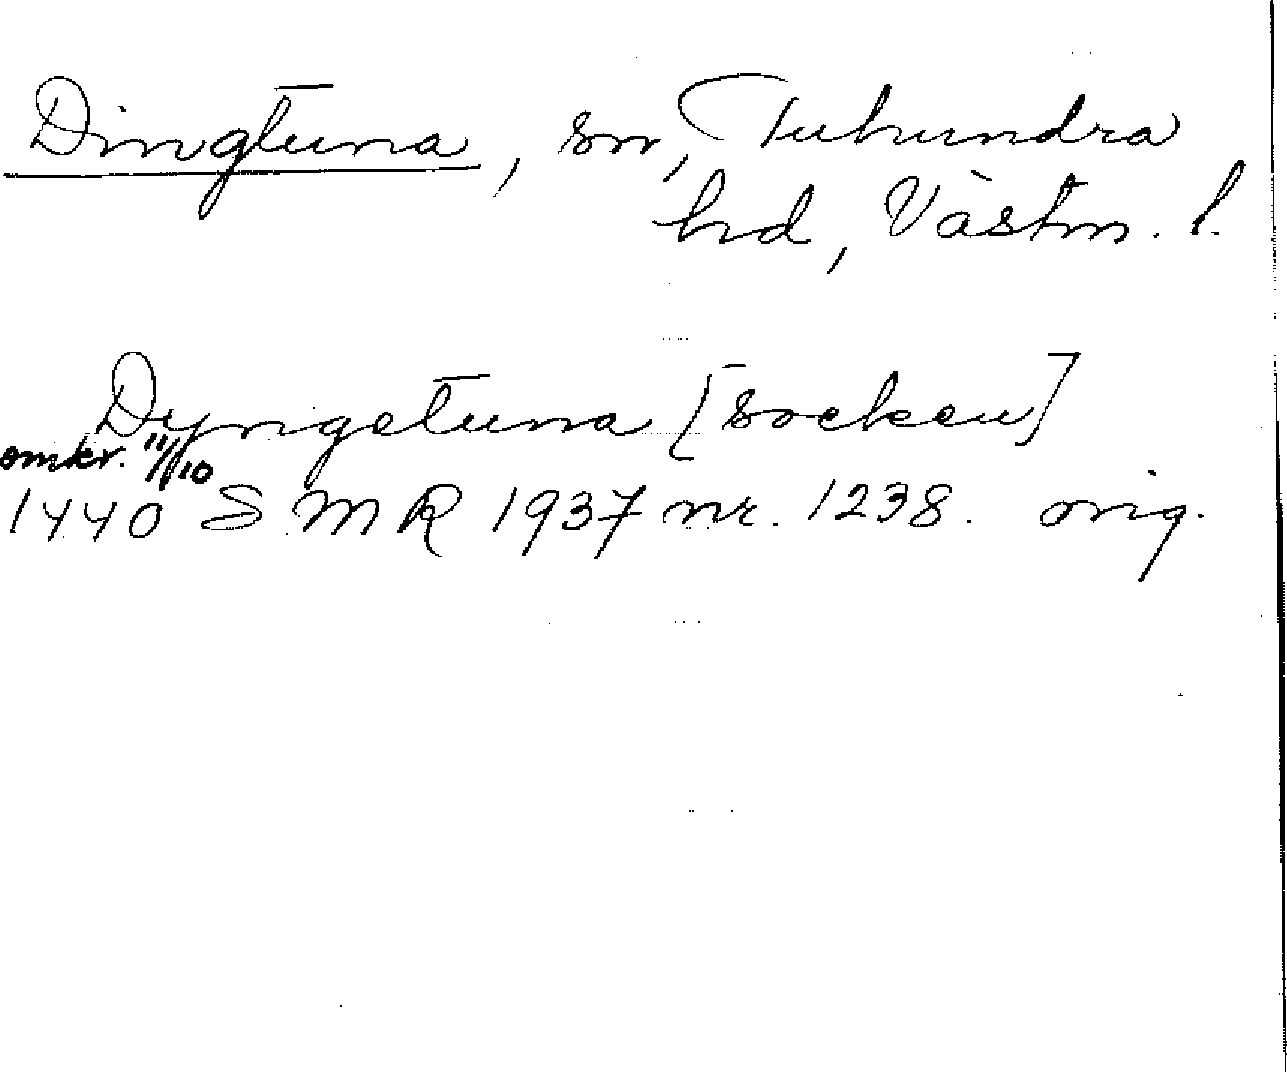 Dingtuna, sn, Tuhundra
hd, Västm. l.
Dyngetuna [socken]
omkr. 11/10
1440 SMR 1937 nr. 1238. orig.